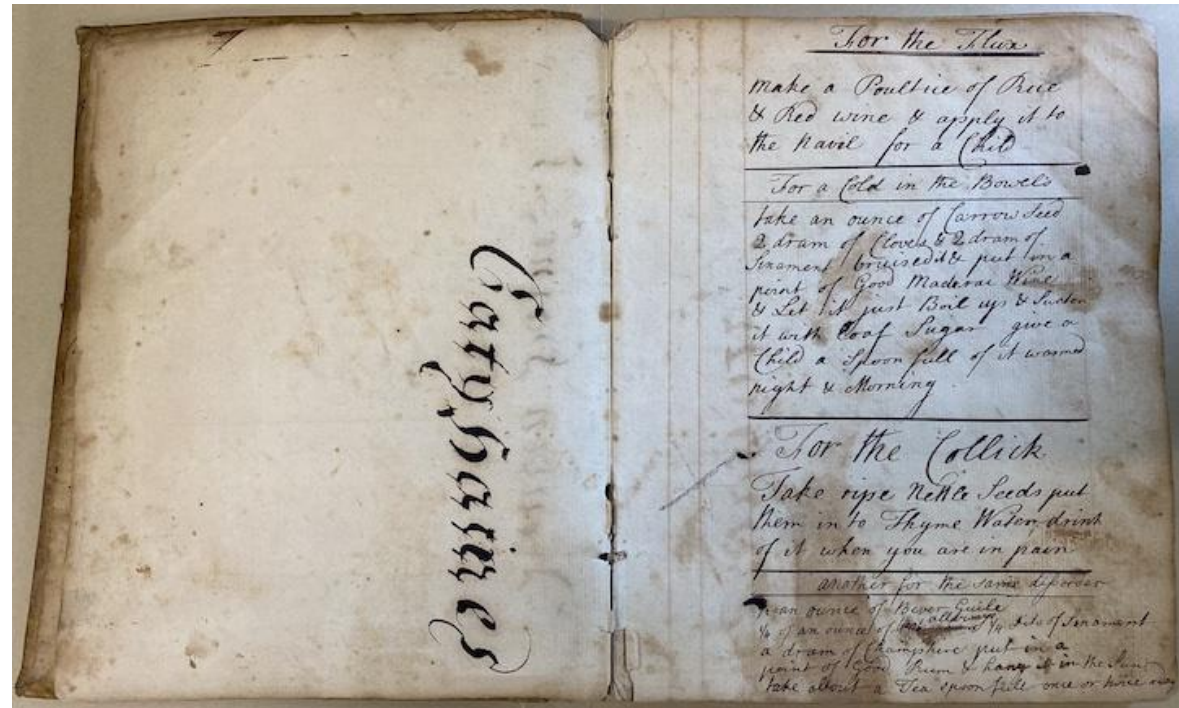 Caty Haines
For the Flux
Make a Poultice of Rue
& Red wine & apply it to
the Navil for a Child
For a Cold in the Bowels
take an ounce of Carrow Seed
2 dram of Cloves & 2 dram of
Sinament bruised it & put in a
peint of Good Maderai Wine
& Let it just Boil up & Sweten
it with loaf Sugar give a
Child a Spoon full of it warmed
night & Morning
For the Collick
Take ripe Nettle Seeds put
them in to Thyme Water, drink
of it when you are in pain
another for the same disorder
an ounce of Bever
¼ of an ounce of ¼ dito of Sinament
a dram of Champhire put in a
peint of Good Rum & hang it in the Sun
take about a Tea spoon full once or twice